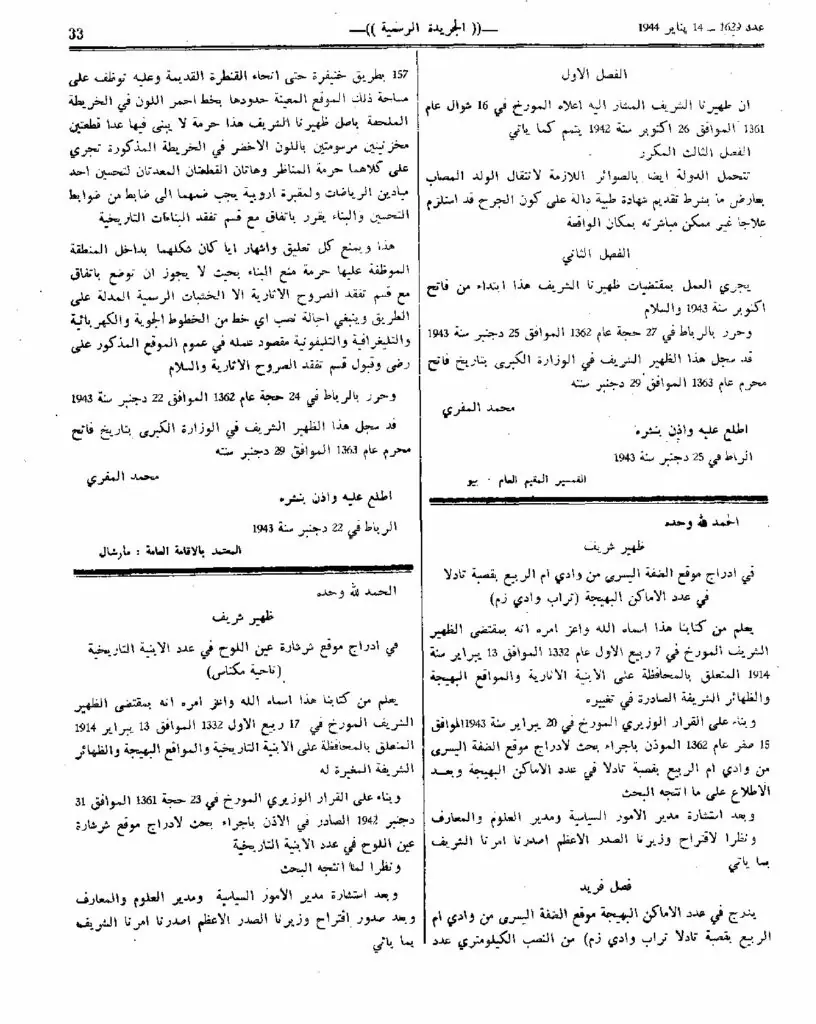 عدد 1629 ـ 14 يناير 1944
ـــ(( الجريدة الرسمية ))ـــ
33
الفصل الاول
ان ظهيرنا الشريف المشار اليه اعلاه المورخ في 16 شوال عام
1361 الموافق 26 اكتوبر سنة 1942 يتمم كما ياتي
الفصل الثالث المكرر
تتحمل الدولة ايضا بالصوائر اللازمة لانتقال الولد المصاب
بعارض ما بشرط تقديم شهادة طبية دالة على كون الجرح قد استلزم
علاجا غير ممكن مباشرته بمكان الواقعة
الفصل الثاني
يجري العمل بمقتضيات ظهيرنا الشريف هذا ابتداء من فاتح
اكتوبر سنة 1943 والسلام
وحرر بالرباط في 27 حجة عام 1362 الموافق 25 دجنبر سنة 1943
قد سجل هذا الظهير الشريف في الوزارة الكبرى بتاريخ فاتح
محرم عام 1363 الموافق 29 دجنبر سنته
محمد المقري
اطلع عليه واذن بنشره
الرباط في 25 دجنبر سنة 1943
القمسير المقيم العام ٠ بيو
الحمد لله وحده
ظهير شريف
في ادراج موقع الضفة اليسرى من وادي ام الربيع بقصبة تادلا
في عدد الاماكن البهيجة (تراب وادي زم)
يعلم من كتابنا هذا اسماه الله واعز امره انه بمقتضى الظهير
الشريف المورخ في 7 ربيع الاول عام 1332 الموافق 13 يبراير سنة
1914 المتعلق بالمحافظة على الابنية الاثارية والمواقع البهيجة
والظهائر الشريفة الصادرة في تغييره
وبناء على القرار الوزيري المورخ في 20 يبراير سنة 1943 الموافق
15 صفر عام 1362 الموذن باجراء بحث لادراج موقع الضفة اليسرى
من وادي ام الربيع بقصبة تادلا في عدد الاماكن البهيجة وبعد
الاطلاع على ما انتجه البحث
وبعد استشارة مدير الامور السياسية ومدير العلوم والمعارف
ونظرا لاقتراح وزيرنا الصدر الاعظم اصدرنا امرنا الشريف
بما ياتي
فصل فريد
يندرج في عدد الاماكن البهيجة موقع الضفة اليسرى من وادي ام
الربيع بقصبة تادلا تراب وادي زم) من النصب الكيلومتري عدد
157 بطريق خنيفرة حتى انحاء القنطرة القديمة وعليه توظف على
مساحة ذلك الموقع المعينة حدودها بخط احمر اللون في الخريطة
الملحقة باصل ظهيرنا الشريف هذا حرمة لا يبنى فيها عدا قطعتين
مخزنيتين مرسومتين باللون الاخضر في الخريطة المذكورة تجري
على كلاهما حرمة المناظر وهاتان القطعتان المعدتان لتحسين احد
ميادين الرياضات ولمقبرة اروبية يجب ضمهما الى ضابط من ضوابط
التحسين والبناء يقرر باتفاق مع قسم تفقد البناءات التاريخية
هذا ويمنع كل تعليق واشهار ايا كان شكلهما بداخل المنطقة
الموظفة عليها حرمة منع البناء بحيث لا يجوز ان توضع باتفاق
مع قسم تفقد الصروح الاثارية الا الخشبات الرسمية المدلة على
الطريق وينبغي احالة نصب اي خط من الخطوط الجوية والكهربائية
والتليغرافية والتليفونية مقصود عمله في عموم الموقع المذكور على
رضى وقبول قسم تفقد الصروح الاثارية والسلام
وحرر بالرباط في 24 حجة عام 1362 الموافق 22 دجنبر سنة 1943
قد سجل هذا الظهير الشريف في الوزارة الكبرى بتاريخ فاتح
محرم عام 1363 الموافق 29 دجنبر سنته
محمد المقري
اطلع عليه واذن بنشره
الرباط في 22 دجنبر سنة 1943
المعتمد بالاقامة العامة : مارشال
الحمد لله وحده
ظهير شريف
في ادراج موقع شرشارة عين اللوح في عدد الابنية التاريخية
(ناحية مكناس)
يعلم من كتابنا هذا اسماه الله واعز امره انه بمقتضى الظهير
الشريف المورخ في 17 ربيع الاول 1332 الموافق 13 يبراير 1914
المتعلق بالمحافظة على الابنية التاريخية والمواقع البهيجة والظهائر
الشريفة المغيرة له
وبناء على القرار الوزيري المورخ في 23 حجة 1361 الموافق 31
دجنبر 1942 الصادر في الاذن باجراء بحث لادراج موقع شرشارة
عين اللوح في عدد الابنية التاريخية
ونظرا لما انتجه البحث
وبعد استشارة مدير الامور السياسية ومدير العلوم والمعارف
وبعد صدور اقتراح وزيرنا الصدر الاعظم اصدرنا امرنا الشريف
بما ياتي